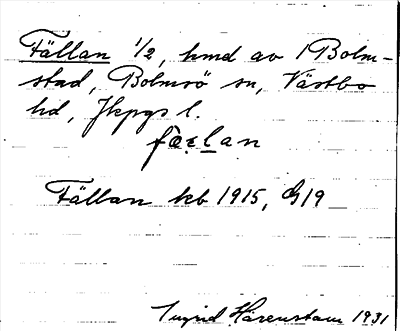 Fällan 1/2, hmd av 1 Bolm-
stad, Bolmsö sn, Västbo
hd, Jkpgs l.
Fällan kb 1915, G19
Ingrid Härenstam 1931